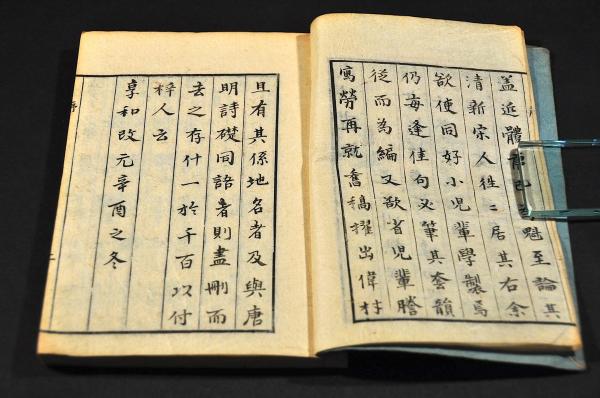 盖近體 魁至論其
清新宋人往〻居其右余
欲使同好小児輩學製焉
仍每逢佳句必筆其套韻
従而為編又欲省児輩謄
寫勞再就舊稿擢出偉材
且有其係地名者及與唐
明詩礎同語者則盡刪而
去之存什一於千百以付
梓人云
享和改元辛酉之冬
序